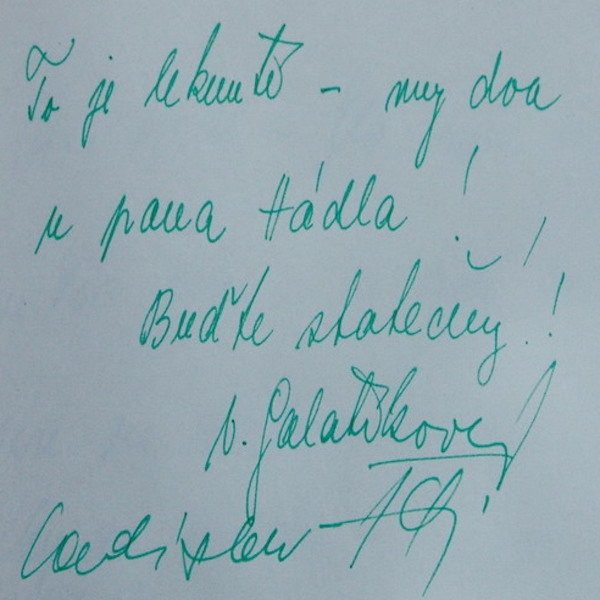 To je lekuntí – my dva
u pana Hádla!
Buďte statečný!
V. Galatíková
Ladislav